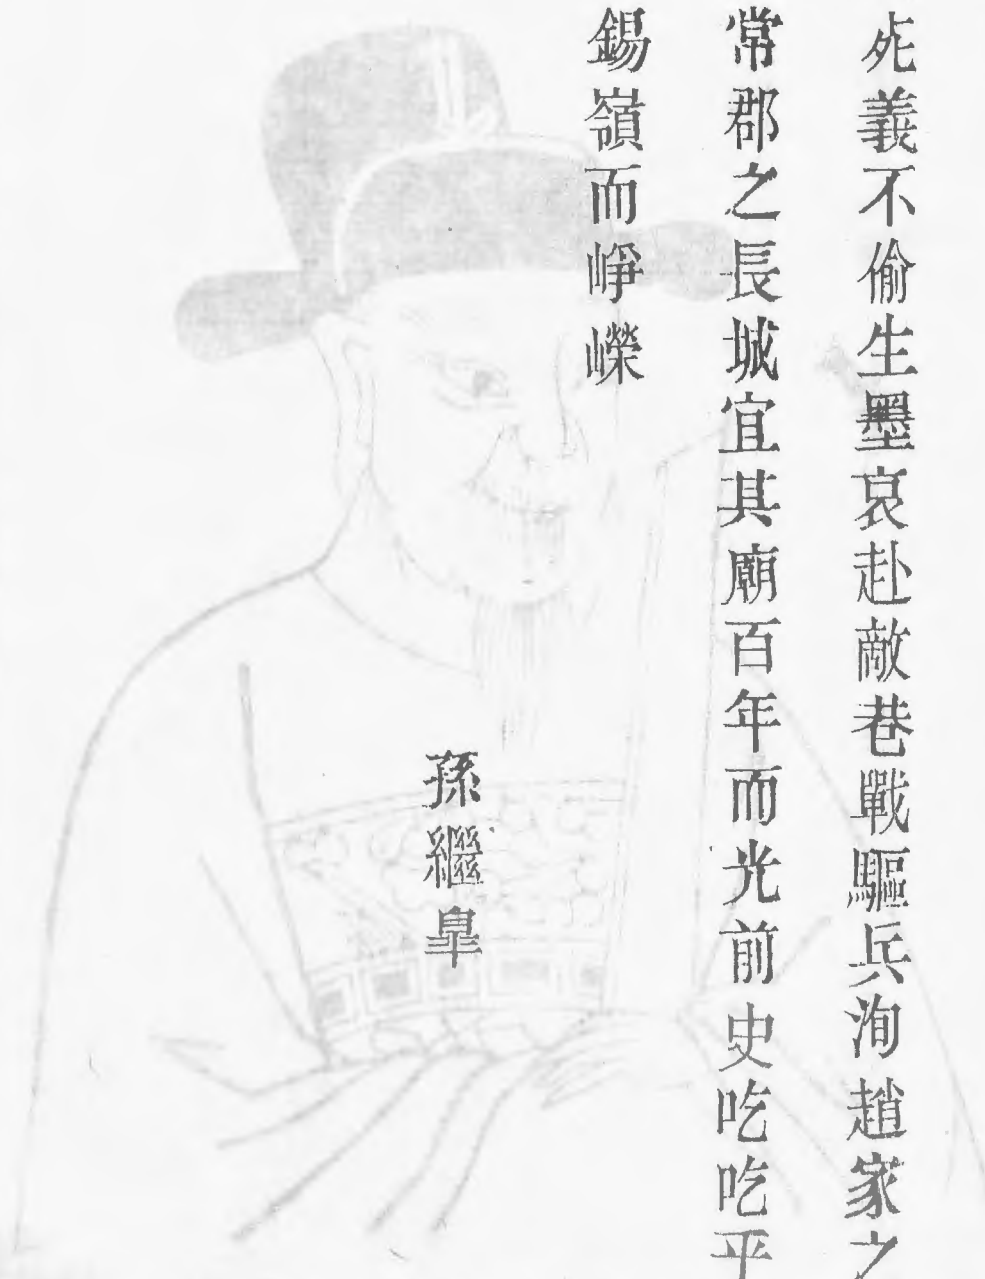 死義不偷生墨哀赴敵巷戰驅兵洵趙家之
常郡之長城宜其廟百年而光前史吃吃平
錫嶺而崢嶸
孫繼皐